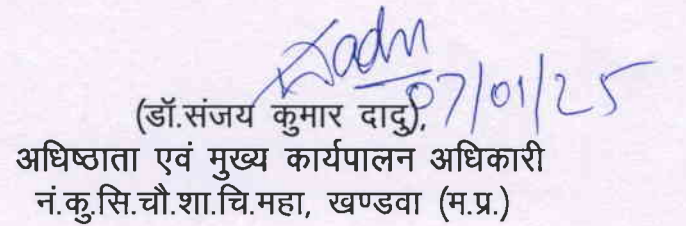 07/01/25
(डॉ.संजय कुमार दादु),
अधिष्ठाता एवं मुख्य कार्यपालन अधिकारी
नं.कु.सि.चौ.शा.चि.महा, खण्डवा (म.प्र.)